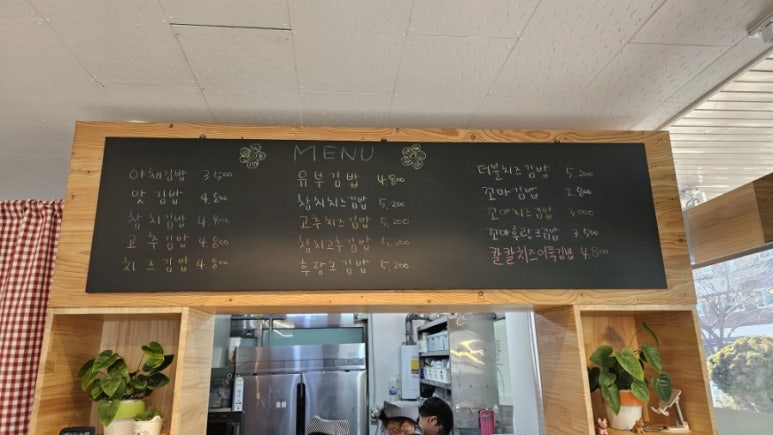 MENU
야채김밥 3,500
맛김밥 4,800
참치김밥 4,800
고추김밥 4,800
치즈김밥 4,800
유부김밥 4,800
참치치즈김밥 5,200
고추치즈김밥 5,200
참치고추김밥 5,200
후랑크김밥 5,200
더블치즈김밥 5,200
꼬마김밥 2,800
꼬마치즈김밥 3,000
꼬마후랑크김밥 3,500
칼칼치즈어묵김밥 4,800